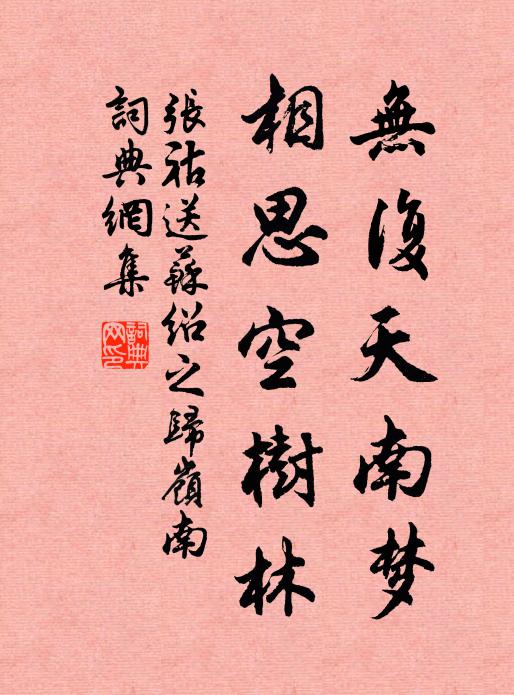 無復天南梦
相思空樹林
張祜送蘇绍之歸嶺南
詞典網集
詞典
网印